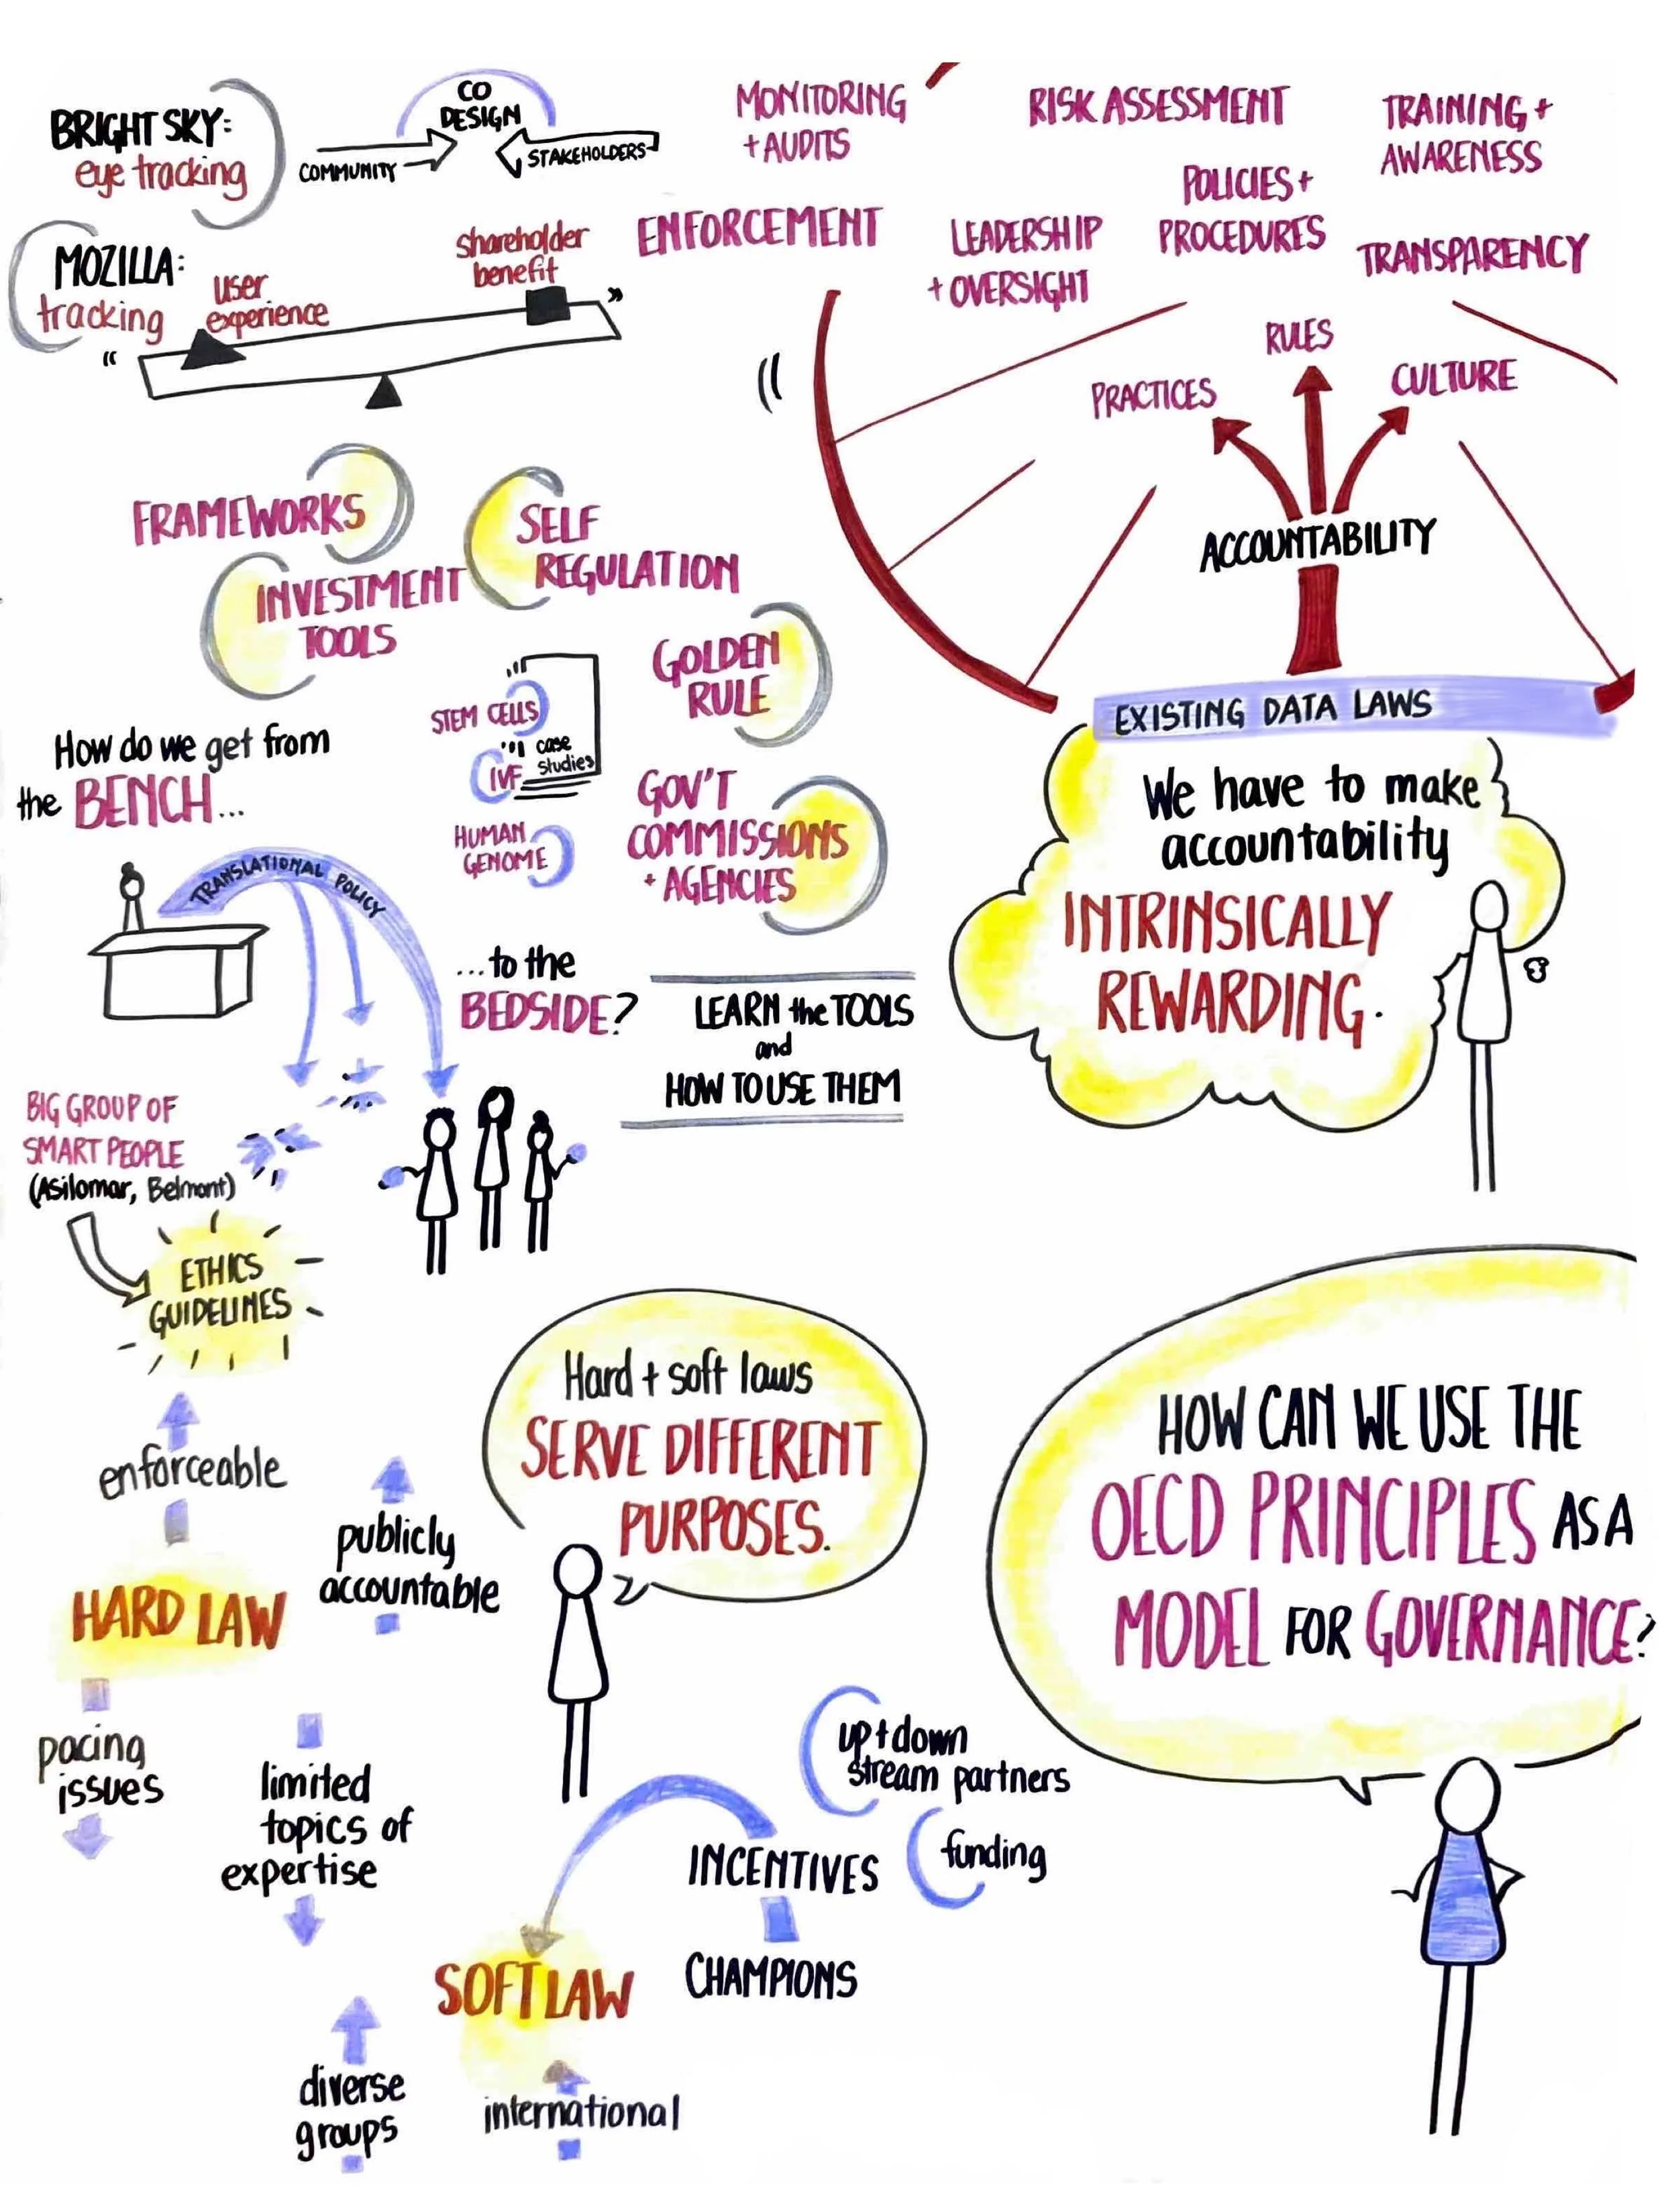 BRIGHT SKY:
eye tracking
CO
DESIGN
COMMUNITY
STAKEHOLDERS
MOZILLA:
tracking
user
experience
shareholder
benefit
MONITORING
+ AUDITS
RISK ASSESSMENT
TRAINING +
AWARENESS
ENFORCEMENT
LEADERSHIP
+ OVERSIGHT
POLICIES +
PROCEDURES
TRANSPARENCY
PRACTICES
RULES
CULTURE
ACCOUNTABILITY
EXISTING DATA LAWS
We have to make
accountability
INTRINSICALLY
REWARDING.
FRAMEWORKS
SELF
REGULATION
INVESTMENT
TOOLS
GOLDEN
RULE
STEM CELLS
case
studies
IVF
HUMAN
GENOME
GOV'T
COMMISSIONS
+ AGENCIES
How do we get from
the BENCH...
TRANSLATIONAL POLICY
...to the
BEDSIDE?
LEARN the TOOLS
and
HOW TO USE THEM
BIG GROUP OF
SMART PEOPLE
(Asilomar, Belmont)
ETHICS
GUIDELINES
enforceable
publicly
accountable
HARD LAW
pacing
issues
limited
topics of
expertise
Hard + soft laws
SERVE DIFFERENT
PURPOSES.
up + down
stream partners
funding
INCENTIVES
CHAMPIONS
SOFT LAW
diverse
groups
international
HOW CAN WE USE THE
OECD PRINCIPLES AS A
MODEL FOR GOVERNANCE?